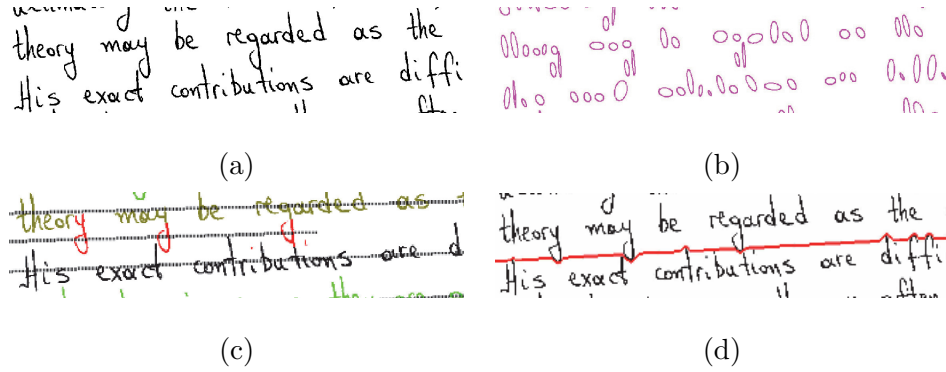 theory may be regarded as the
His exact contributions are diffi
(a)
(b)
theory may be regarded as
His exact contributions are d
the
(c)
theory may be regarded as the
His exact contributions are diffi
(d)